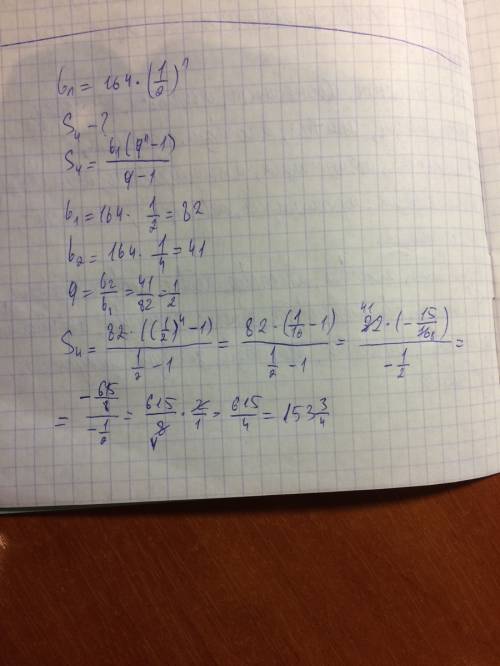 bₙ = 164 · (1/2)ⁿ
S₄ - ?
S₄ = b₁(qⁿ-1)/(q-1)
b₁ = 164 · 1/2 = 82
b₂ = 164 · 1/4 = 41
q = b₂/b₁ = 41/82 = 1/2
S₄ = 82·((1/2)⁴-1)/(1/2-1) = 82·(1/16-1)/(1/2-1) = 82·(-15/16)/(-1/2) =
= (-615/8)/(-1/2) = 615/8 · 2/1 = 615/4 = 153 3/4